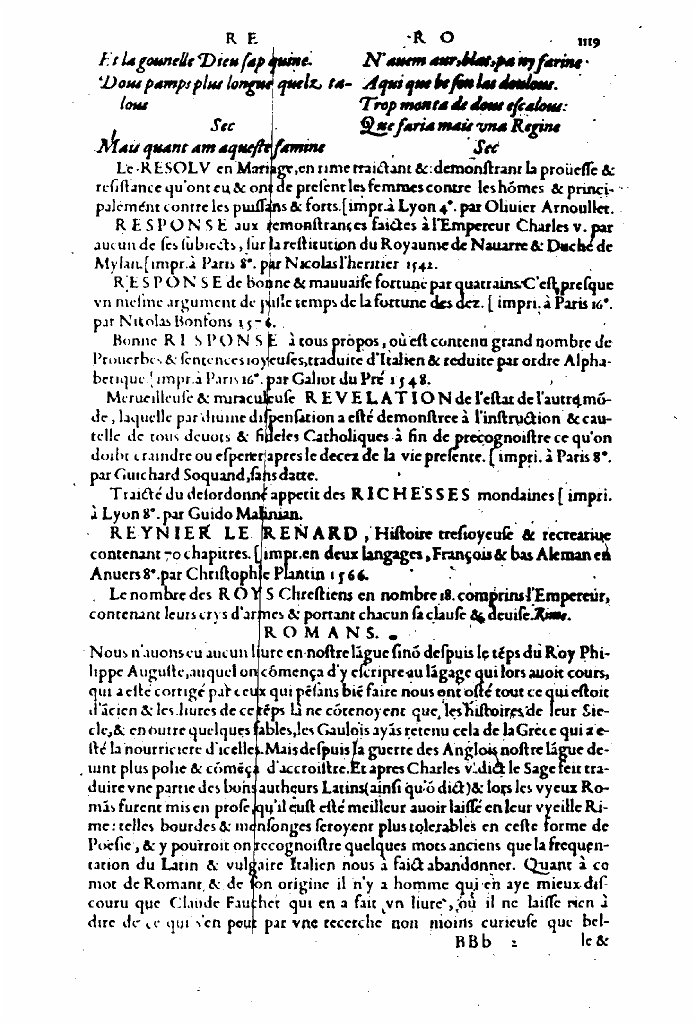 R E R O 1119
Et la gounelle Dieu sap quine.
Dous pamps plus longue quelz ta-
lous
Sec
Mais quant am aqueste famine
N'auem aur, blat, pa ny farine
Aqui que be son las doulous.
Trop monta de dous escalous:
Que faria mais vna Regine
Sec
Le RESOLV en Mariage, en rime traictant & demonstrant la proüesse &
resistance qu'ont eu & ont de present les femmes contre les hõmes & princi-
palemẽt contre les puissans & forts. [impr. à Lyon 4°. par Oliuier Arnoullet.
RESPONSE aux remonstrances faictes à l'Empereur Charles v. par
aucun de ses subiects, sur la restitution du Royaume de Nauarre & Duché de
Mylan. [impr. à Paris 8°. par Nicolas l'heritier 1542.
RESPONSE de bonne & mauuaise fortune par quatrains. C'est presque
vn mesme argument de passe temps de la fortune des dez. [impri. à Paris 16°.
par Nicolas Bonfons 1576.
Bonne RESPONSE à tous propos, où est contenu grand nombre de
Prouerbes & sentences ioyeuses, traduite d'Italien & reduite par ordre Alpha-
betique [impr. à Paris 16°. par Galiot du Pré 1548.
Merueilleuse & miraculeuse REVELATION de l'estat de l'autre mõ-
de, laquelle par diuine dispensation a esté demonstree à l'instruction & cau-
telle de tous deuots & fideles Catholiques à fin de precognoistre ce qu'on
doibt craindre ou esperer apres le decez de la vie presente. [impri. à Paris 8°.
par Guichard Soquand, sans datte.
Traicté du desordonné appetit des RICHESSES mondaines [impri.
à Lyon 8°. par Guido Malinian.
REYNIER LE RENARD, Histoire tresioyeuse & recreatiue
contenant 70 chapitres. [impr. en deux langages, François & bas Aleman en
Anuers 8°. par Christophle Plantin 1566.
Le nombre des ROYS Chrestiens en nombre 18. comprins l'Empereur,
contenant leurs crys d'armes & portant chacun sa clause & deuise. Rime.
ROMANS.
Nous n'auons eu aucun liure en nostre lãgue sinõ despuis le tẽps du Roy Phi-
lippe Auguste, auquel on cõmença d'y escripre au lãgage qui lors auoit cours,
qui a esté corrigé par ceux qui pẽsans biẽ faire nous ont osté tout ce qui estoit
d'ãcien & les liures de ce tẽps là ne cõtenoyent que les histoires de leur Sie-
cle, & en outre quelques fables, les Gaulois ayãs retenu cela de la Grèce qui a e-
sté la nourriciere d'icelles. Mais despuis la guerre des Anglois nostre lãgue de-
uint plus polie & cõmẽça d'accroistre. Et apres Charles v. dict le Sage feit tra-
duire vne partie des bons autheurs Latins (ainsi qu'õ dict) & lors les vyeux Ro-
mãs furent mis en prose qu'il eust esté meilleur auoir laissé en leur vyeille Ri-
me: telles bourdes & mensonges seroyent plus tolerables en ceste forme de
Poësie, & y pourroit on recognoistre quelques mots anciens que la frequen-
tation du Latin & vulgaire Italien nous à faict abandonner. Quant à ce
mot de Romant & de son origine il n'y a homme qui en aye mieux dis-
couru que Claude Fauchet qui en a fait vn liure, où il ne laisse rien à
dire de ce qui s'en peut par vne recerche non moins curieuse que bel-
BBb 2 le &